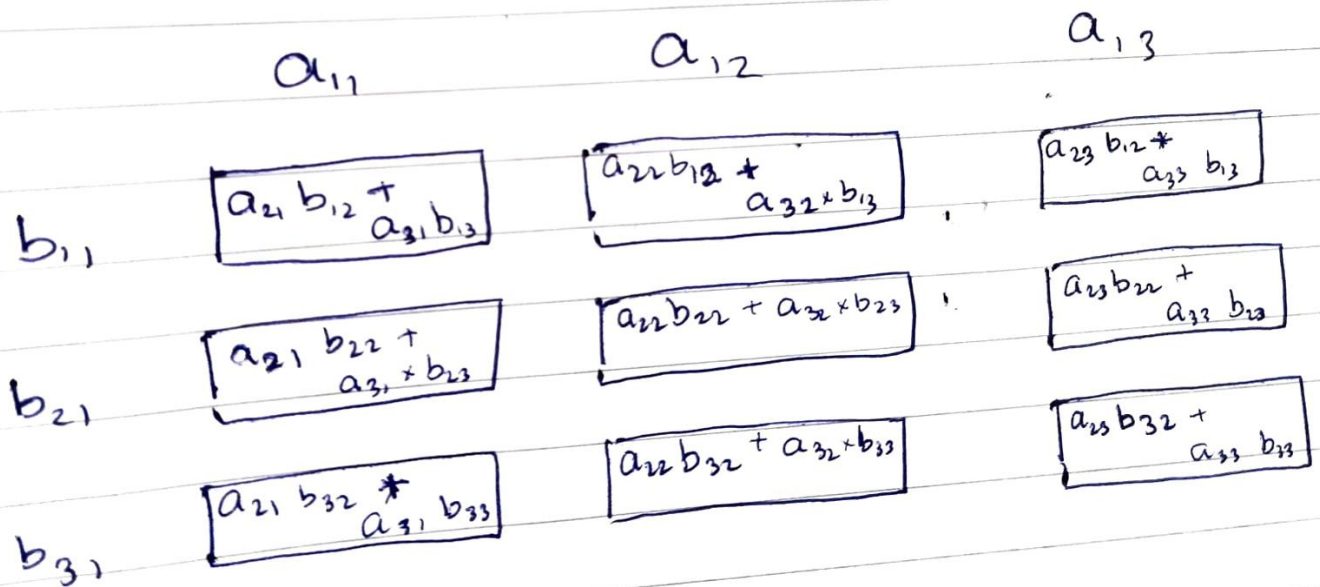 a₁₁ a₁₂ a₁₃
b₁₁
a₂₁ b₁₂ +
a₃₁ b₁₃
a₂₂ b₁₂ *
a₃₂ × b₁₃
a₂₃ b₁₂ *
a₃₃ b₁₃
b₂₁
a₂₁ b₂₂ +
a₃₁ × b₂₃
a₂₂ b₂₂ + a₃₂ × b₂₃
a₂₃ b₂₂ +
a₃₃ b₂₃
b₃₁
a₂₁ b₃₂ *
a₃₁ b₃₃
a₂₂ b₃₂ + a₃₂ × b₃₃
a₂₃ b₃₂ +
a₃₃ b₃₃